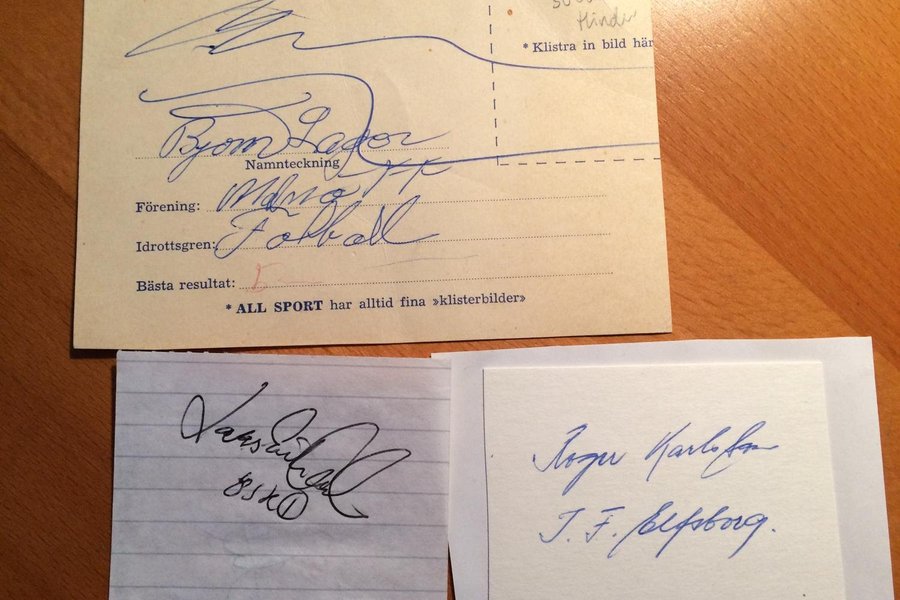 Hinder
* Klistra in bild här
Björn Lager
Namnteckning
Förening: Malmö FF
Idrottsgren: Fotboll
Bästa resultat:
* ALL SPORT har alltid fina »klisterbilder»
Roger Karlsson
I. F. Elfsborg.